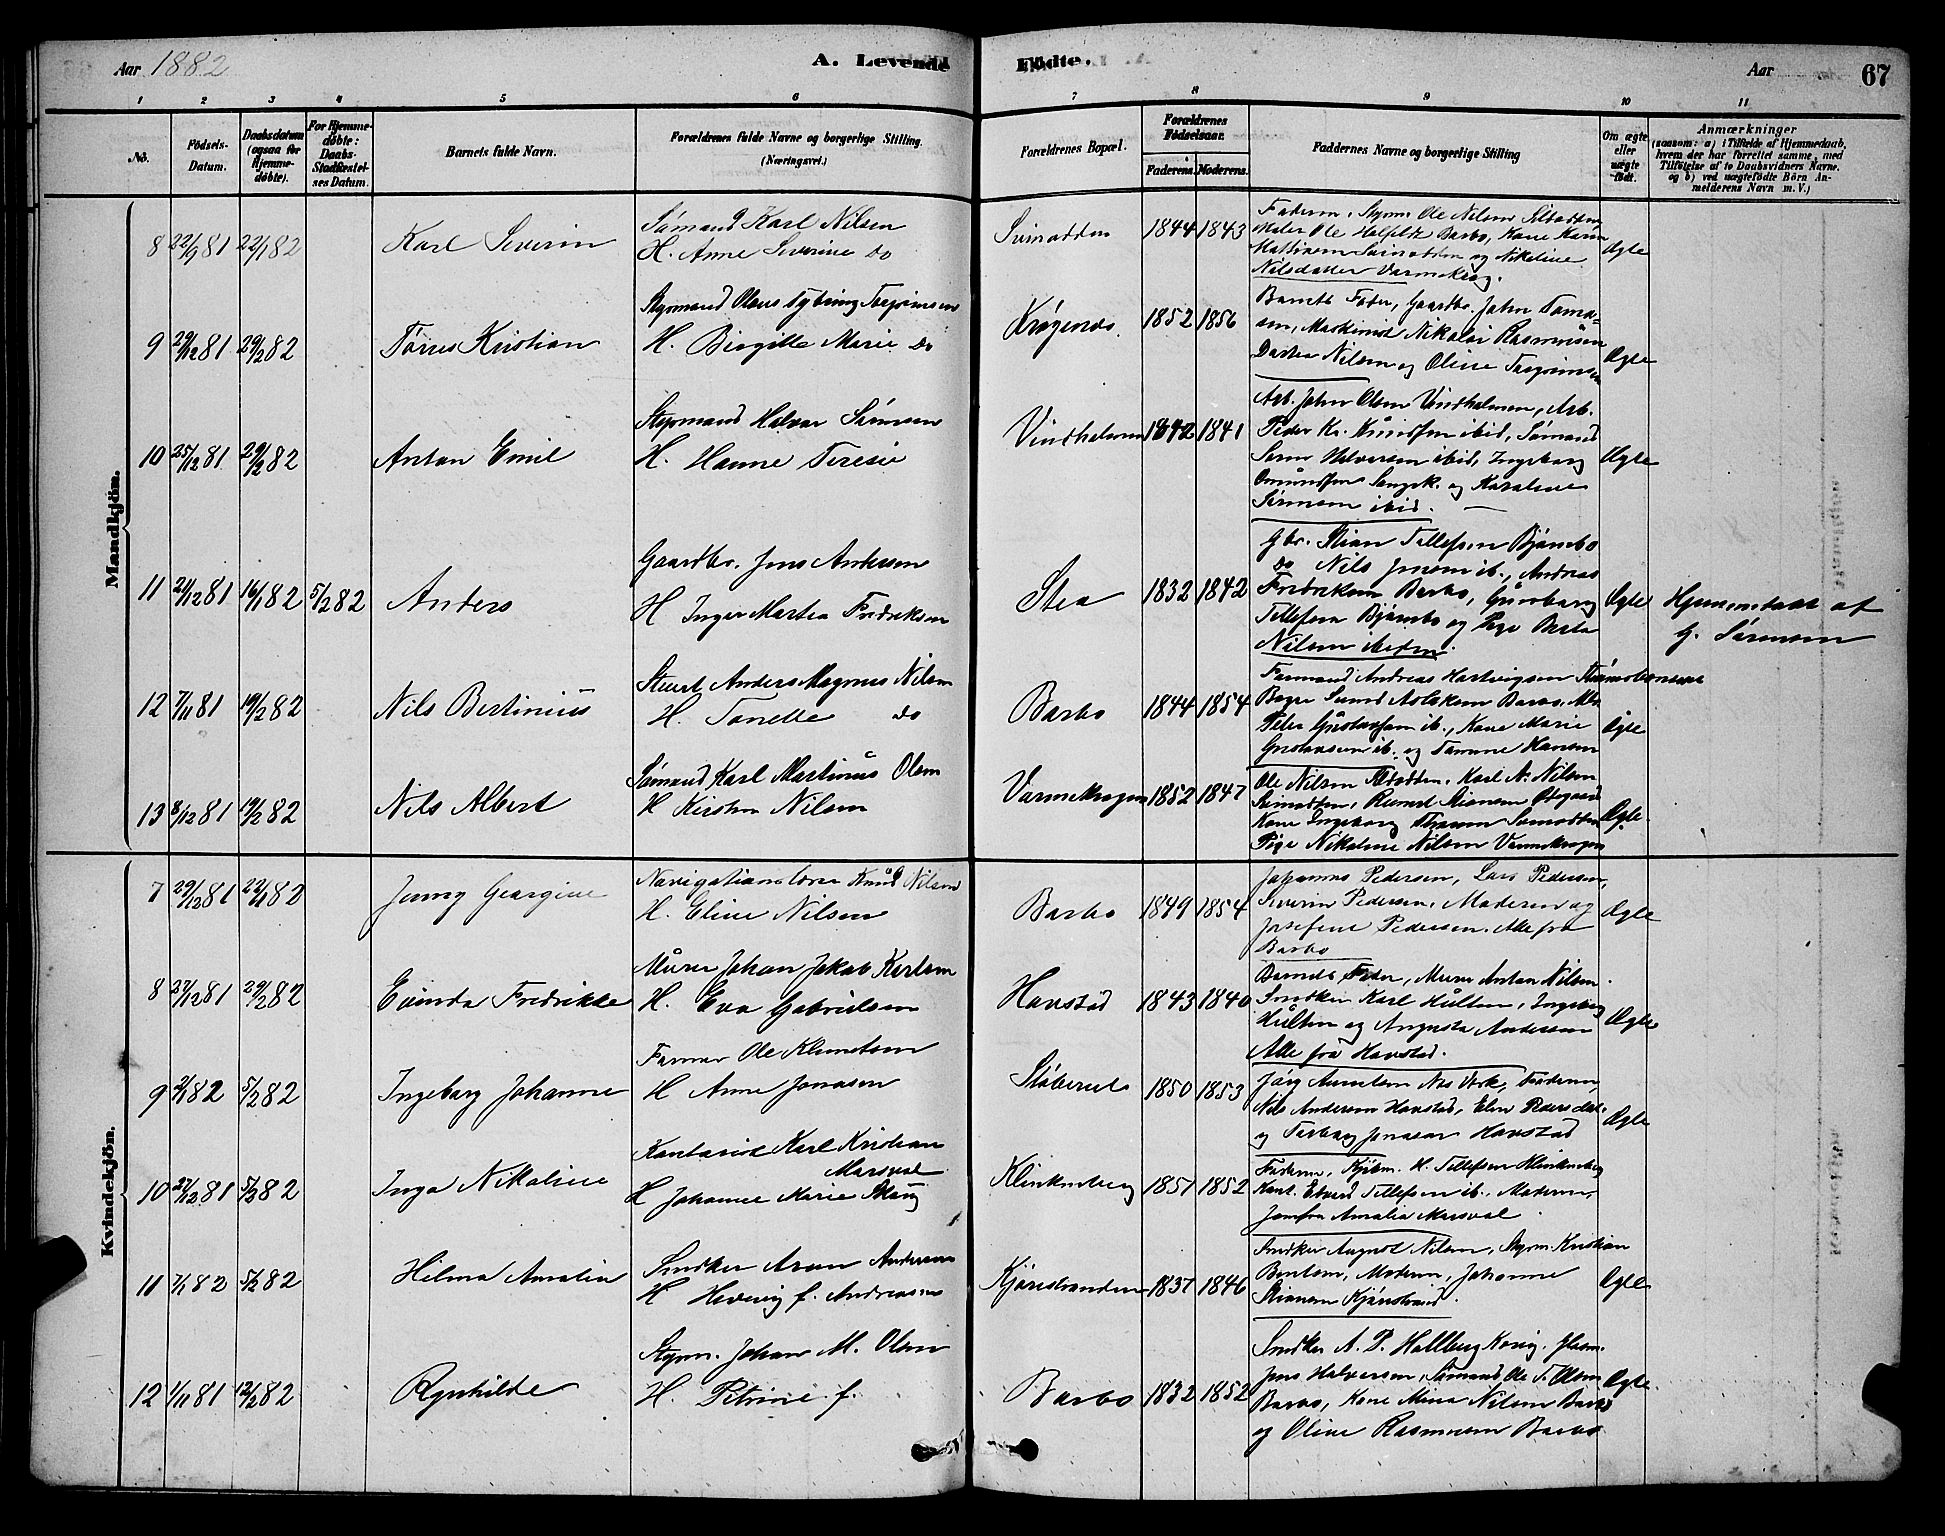 Aar 1882
A. Levende
Födte.
Aar
67
1 2 3 4 5 6 7 8 9 10 11
No.
Födsels-
Datum.
Daabsdatum
(ogsaa for
Hjemme-
döbte).
For Hjemme-
döbte:
Daabs-
Stadfæstel-
ses Datum.
Barnets fulde Navn.
Forældrenes fulde Navne og borgerlige Stilling.
(Næringsvei.)
Forældrenes Bopæl.
Forældrenes
Födselsaar.
Faderens. Moderens.
Faddernes Navne og borgerlige Stilling
Om ægte
eller
uægte
födt.
Anmærkninger
(saasom: a) i Tilfælde af Hjemmedaab,
hvem der har forrettet samme, med
Tilföielse af to Daabsvidners Navne.
og b) ved uægtefödte Börn An-
melderens Navn m. V.)
Mandkjön.
8 22/9 81 22/1 82
Karl Severin
Sömand Karl Nilsen
H. Anne Severine do
Svinodden
1844 1843
Faderen, Styrm. Ole Nilsen
Maler Ole Barbo, Kone Karen
Svinodden og Nikoline
Nilsdatter Varmekrog.
Ægte
9 29/12 81 29/2 82
Törres Kristian
Styrmand Olaus Tybring Torgrimsen
H. Birgitte Marie do
Krögenes
1852 1856
Barnets Fader, Gaardbr. John
Maskinist Nikolai Rasmussen
Dorthea Nilsen og Oline Torgrimsen
Ægte
10 25/12 81 29/2 82
Anton Emil
Styrmand Halvor Sörensen
H. Hanne Teresie
Vindholmen
1842 1841
Arb. John Olsen Vindholmen, Arb.
Peder Kr. Knudsen ibid, Sömand
Sören Halversen ibid, Ingeborg
Omundsen Songek. og Karoline
Sörensen ibid.
Ægte
11 21/12 81 16/1 82 5/2 82
Anders
Gaardbr. Jens Andersen
H Inger Martea Fredriksen
Stea
1832 1842
Gbr. Stian Tellefsen Bjömsbo
do Nils Jensen ib., Andreas
Fredriksen Barbo, Gunborg
Tellefsen Bjömsbo og Pige Berta
Nilsen ibidem.
Ægte
Hjemmedöbt af
G. Sörensen
12 7/11 81 19/2 82
Nils Bertinius
Stuert Anders Magnus Nilsen
H. Tonette do
Barbo
1844 1854
Formand Andreas Hartvigsen
Bager Aslaksen Barbo,
Peter Gustavsen ib., Kone Marie
Gustavsen ib. og Tomine Hansen
Ægte
13 8/12 81 19/2 82
Nils Albert
Sömand Karl Martinus Olsen
H Kirsten Nilsen
Varmekrogen
1852 1847
Ole Nilsen, Karl N. Nilsen
Svinodden, Stiansen
Kone Ingeborg Svinodden
Pige Nikoline Nilsen Varmekrogen
Ægte
Kvindekjön.
7 29/12 81 22/1 82
Jenny Georgine
Navigationslærer Knud Nilsen
H. Eline Nilsen
Barbo
1849 1854
Johannes Pedersen, Lars Pedersen,
Severin Pedersen, Moderen og
Josefine Pedersen. Alle fra
Barbo
Ægte
8 27/12 81 29/2 82
Evinda Fredrikke
Murer Johan Jakob Karlsen
H. Eva Gabrielsen
Havstad
1843 1840
Barnets Fader, Murer Anton Nilsen
Snedker Karl Hulten, Ingeborg
Hulten og Augusta Andersen
Alle fra Havstad.
Ægte
9 2/1 82 5/2 82
Ingeborg Johanne
Formær Ole Klemetsen
H Anne Jonasen
Stöberiet
1850 1853
Jörg Næs Værk, Faderen,
Nils Andersen Havstad, Elen Pedersdat.
og Torborg Jonasen Havstad
Ægte
10 27/12 81 5/2 82
Inga Nikoline
Kontorist Karl Kristian
Marsval
H Johanne Marie Skaug
Klinkenberg
1851 1852
Faderen, Kjöbm. H. Tellefsen Klinkenberg
Kont. Edvard Tellefsen ib., Moderen,
Jomfru Amalia Marsval
11 7/1 82 5/2 82
Hilma Amalia
Snedker Aron Andersen
H Hedevig f. Andreasen
Kjönstranden
1837 1846
Snedker August Nilsen, Styrm. Kristian
Bentsen, Moderen, Johanne
Stiansen Kjönstrand.
Ægte
12 1/11 81 12/2 82
Rynhilde
Styrm. Johan M. Olsen
H. Petrine f.
Barbo
1832 1852
Snedker A. P. Hallberg
Jens Halversen, Sömand Ole T. Olsen
Barbo, Kone Mina Nilsen Barbo
og Oline Rasmussen Barbo
Ægte.